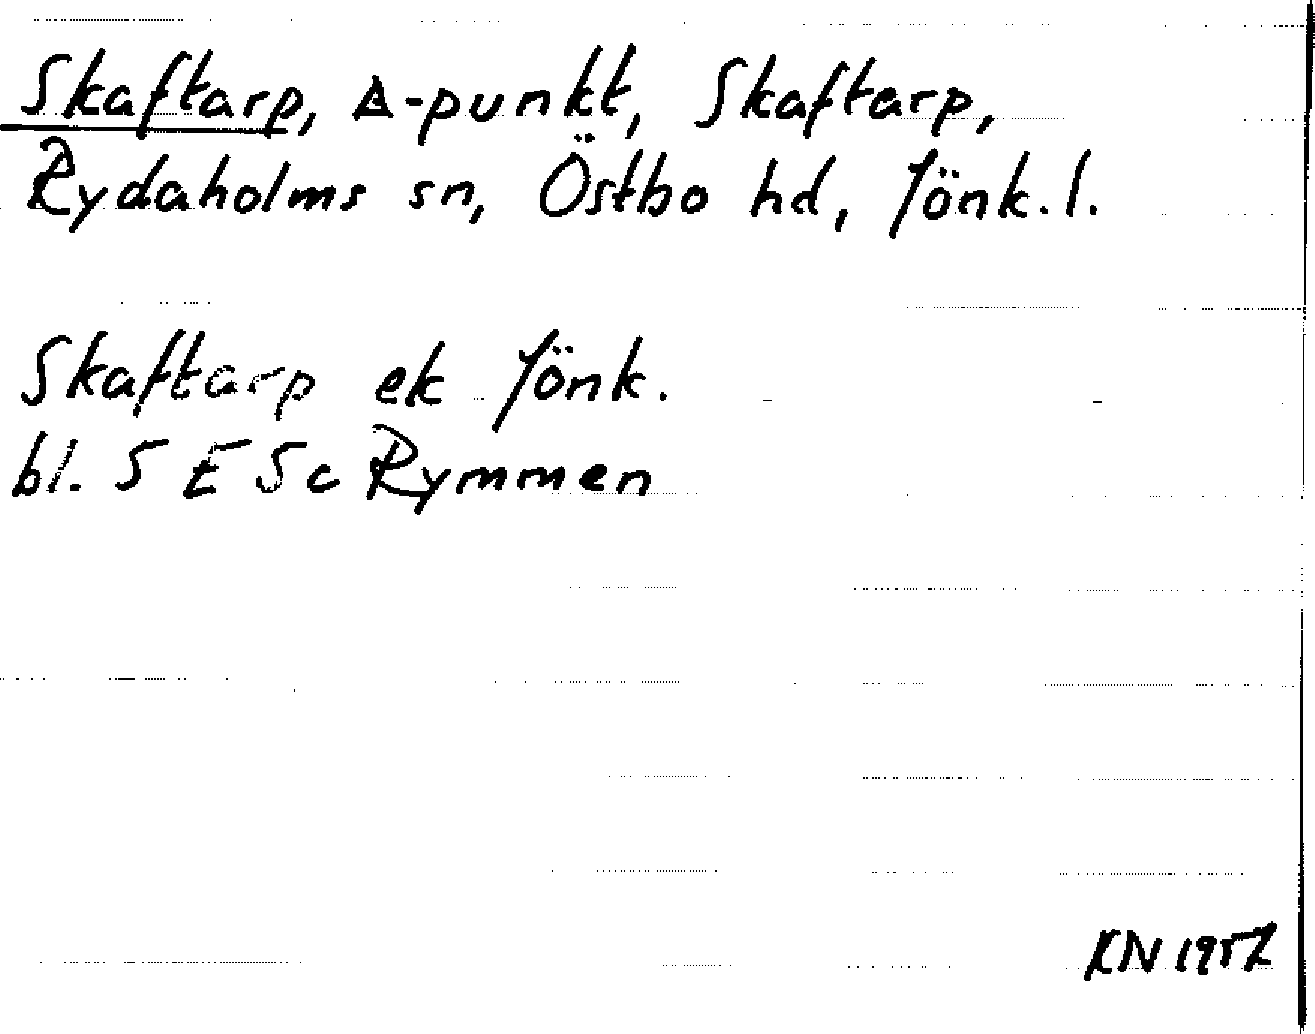 Skaftarp, Δ-punkt, Skaftarp,
Rydaholms sn, Östbo hd, Jönk. l.
Skaftarp ek Jönk.
bl. 5 E 5c Rymmen
KN 1957